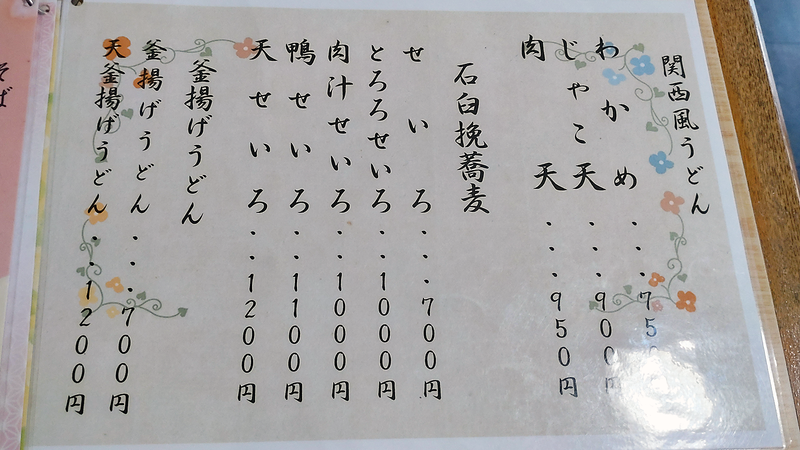 関西風うどん
わかめ・・・750
じゃこ天・・・900円
肉天・・・950円
石臼挽蕎麦
せいろ・・・700円
とろろせいろ・・1000円
肉汁せいろ・・1000円
鴨せいろ・・1100円
天せいろ・・1200円
釜揚げうどん
釜揚げうどん・・・700円
天釜揚げうどん・・1200円
そば